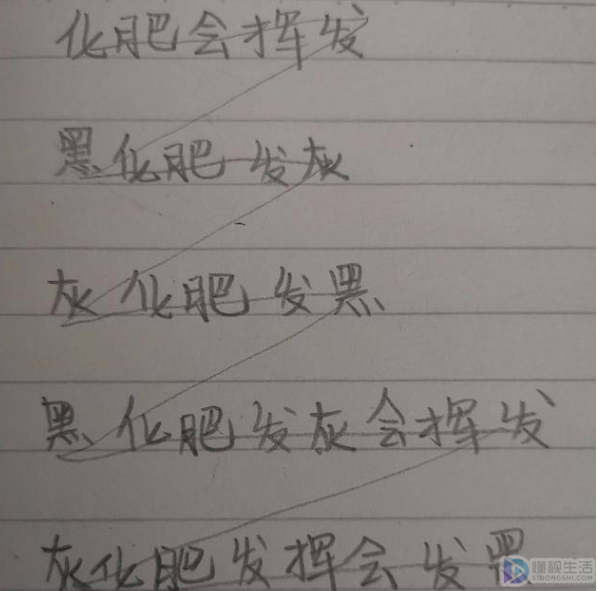 化肥会挥发
黑化肥发灰
灰化肥发黑
黑化肥发灰会挥发
灰化肥发挥会发黑
懂视生活
51DONGSHI.COM